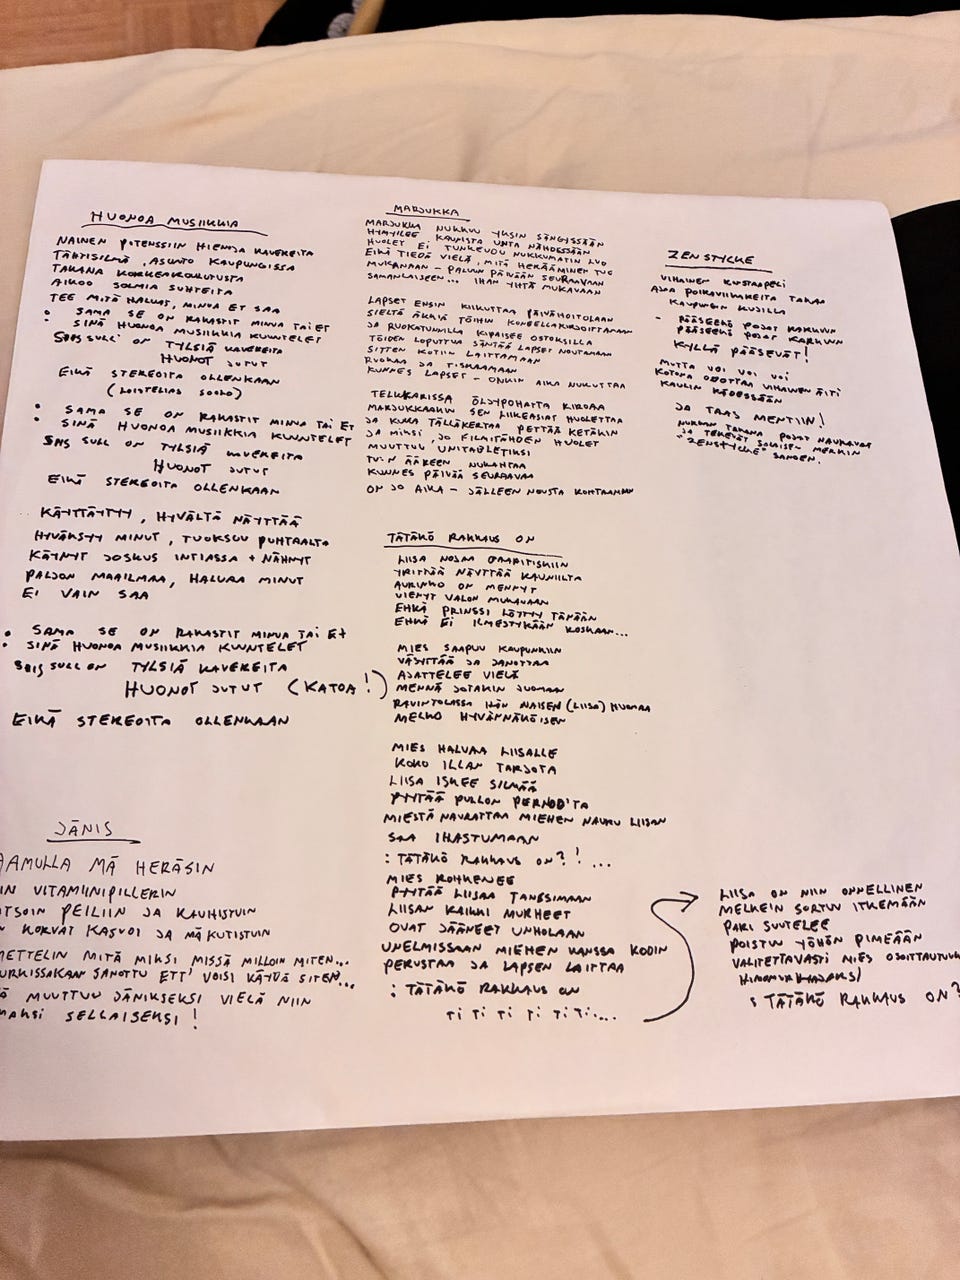 HUONOA MUSIIKKIA
NAINEN POTENSSIIN HIENOJA KAVEREITA
TÄHTISILMÄ, ASUNTO KAUPUNGISSA
TAKANA KORKEAKOULUTUSTA
AIKOO SOLMIA SUHTEITA
TEE MITÄ HALUAT, MINUA ET SAA
: SAMA SE ON RAKASTIT MINUA TAI ET
: SINÄ HUONOA MUSIIKKIA KUUNTELET
SIIS SULL' ON TYLSIÄ KAVEREITA
HUONOT JUTUT
EIKÄ STEREOITA OLLENKAAN
(LOISTELIAS SOOLO)
: SAMA SE ON RAKASTIT MINUA TAI ET
: SINÄ HUONOA MUSIIKKIA KUUNTELET
SIIS SULL ON TYLSIÄ KAVEREITA
HUONOT JUTUT
EIKÄ STEREOITA OLLENKAAN
KÄYTTÄYTYY, HYVÄLTÄ NÄYTTÄÄ
HYVÄKSYY MINUT, TUOKSUU PUHTAALTA
KÄYNYT JOSKUS INTIASSA + NÄHNYT
PALJON MAAILMAA, HALUAA MINUT
EI VAIN SAA
: SAMA SE ON RAKASTIT MINUA TAI ET
: SINÄ HUONOA MUSIIKKIA KUUNTELET
SIIS SULL ON TYLSIÄ KAVEREITA
HUONOT JUTUT (KATOA!)
EIKÄ STEREOITA OLLENKAAN
JÄNIS
AAMULLA MÄ HERÄSIN
IN VITAMIINIPILLERIN
TSOIN PEILIIN JA KAUHISTUIN
N KORVAT KASVOI JA MÄ KUTISTUIN
METTELIN MITÄ MIKSI MISSÄ MILLOIN MITEN...
URKISSAKAAN SANOTTU ETT' VOISI KÄYDÄ SITEN...
Ä MUUTTUU JÄNIKSEKSI VIELÄ NIIN
MAKSI SELLAISEKSI!
MARJUKKA
MARJUKKA NUKKUU YKSIN SÄNGYSSÄÄN
HYMYILEE KAUNISTA UNTA NÄHDESSÄÄN
HUOLET EI TUNKEUDU NUKKUMATIN LUO
EIKÄ TIEDÄ VIELÄ, MITÄ HERÄÄMINEN TUO
MUKANAAN - PALUUN PÄIVÄÄN SEURAAVAAN
SAMANLAISEEN... IHAN YHTÄ MUKAVAAN
LAPSET ENSIN KIIKUTTAA PÄIVÄHOITOLAAN
SIELTÄ ÄKKIÄ TÖIHIN KONEELLAKIRJOITTAMAAN
JA RUOKATUNNILLA KIPAISEE OSTOKSILLA
TÖIDEN LOPUTTUA SÄNTÄÄ LAPSET NOUTAMAAN
SITTEN KOTIIN LAITTAMAAN
RUOKAA JA TISKAAMAAN
KUNNES LAPSET - ONKIN AIKA NUKUTTAA
TELKKARISSA ÖLJYPOHATTA KIROAA
MARJUKKAAKIN SEN LIIKEASIAT HUOLETTAA
JA KUKA TÄLLÄKERTAA PETTÄÄ KETÄKIN
JA MIKSI, JO FILMITÄHDEN HUOLET
MUUTTUU UNITABLETIKSI
TV:N ÄÄREEN NUKAHTAA
KUNNES PÄIVÄÄ SEURAAVAA
ON JO AIKA - JÄLLEEN NOUSTA KOHTAAMAAN
TÄTÄKÖ RAKKAUS ON
LIISA NOJAA BAARITISKIIN
YRITTÄÄ NÄYTTÄÄ KAUNIILTA
AURINKO ON MENNYT
VIENYT VALON MUKANAAN
EHKÄ PRINSSI LÖYTYY TÄNÄÄN
EHKÄ EI ILMESTYKÄÄN KOSKAAN...
MIES SAAPUU KAUPUNKIIN
VÄSYTTÄÄ JA JANOTTAA
AJATTELEE VIELÄ
MENNÄ JOTAKIN JUOMAAN
RAVINTOLASSA HÄN NAISEN (LIISA) HUOMAA
MELKO HYVÄNNÄKÖISEN
MIES HALUAA LIISALLE
KOKO ILLAN TARJOTA
LIISA ISKEE SILMÄÄ
PYYTÄÄ PULLON PERNOD'TA
MIESTÄ NAURATTAA MIEHEN NAURU LIISAN
SAA IHASTUMAAN
: TÄTÄKÖ RAKKAUS ON?! ...
MIES ROHKENEE
PYYTÄÄ LIISAA TANSSIMAAN
LIISAN KAIKKI MURHEET
OVAT JÄÄNEET UNHOLAAN
UNELMISSAAN MIEHEN KANSSA KODIN
PERUSTAA JA LAPSEN LAITTAA
: TÄTÄKÖ RAKKAUS ON
TI TI TI TI TI TI...
ZEN STYCKE
VIHAINEN KUSTAAPELI
AJAA POIKAVIIKAREITA TAKAA
KAUPUNGIN KUJILLA
- PÄÄSEEKÖ POJAT KARKUUN
PÄÄSEEKÖ POJAT KARKUUN
KYLLÄ PÄÄSEVÄT!
MUTTA VOI VOI VOI
KOTONA ODOTTAA VIHAINEN ÄITI
KAULIN KÄDESSÄÄN
JA TAAS MENTIIN!
NURKAN TAKANA POJAT NAURAVAT
JA TEKEVÄT MERKIN
"ZENSTYCKE" SANOEN.
LIISA ON NIIN ONNELLINEN
MELKEIN SORTUU ITKEMÄÄN
PARI SUUTELEE
POISTUU YÖHÖN PIMEÄÄN
VALITETTAVASTI MIES OSOITTAUTUU
: TÄTÄKÖ RAKKAUS ON?